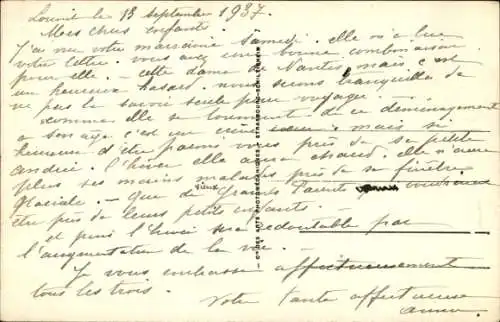 le 13 septembre 1937.
Mes chers enfants.
J'ai vu votre marraine Samedi. elle m'a lue
votre lettre vous avez une bonne combinaison
pour elle. - cette dame de Nantes, mais c'est
un heureux hasard. nous serons tranquilles de
ne pas la savoir seule pour voyager. -
comme elle se tourmente de ce déménagement
a son age c'est un mais si
heureuse d'être parmi vous près de sa petite
Andrée. l'hiver elle aura chaud. elle n'aura
plus ses mains malades près de sa fenêtre
Glaciale. - Que de vieux Grands Parents
être près de leurs petits enfants. -
et puis l'hiver sera redoutable par
l'augmentation de la vie. -
Je vous embrasse affectueusement
tous les trois.
Votre tante affectueuse